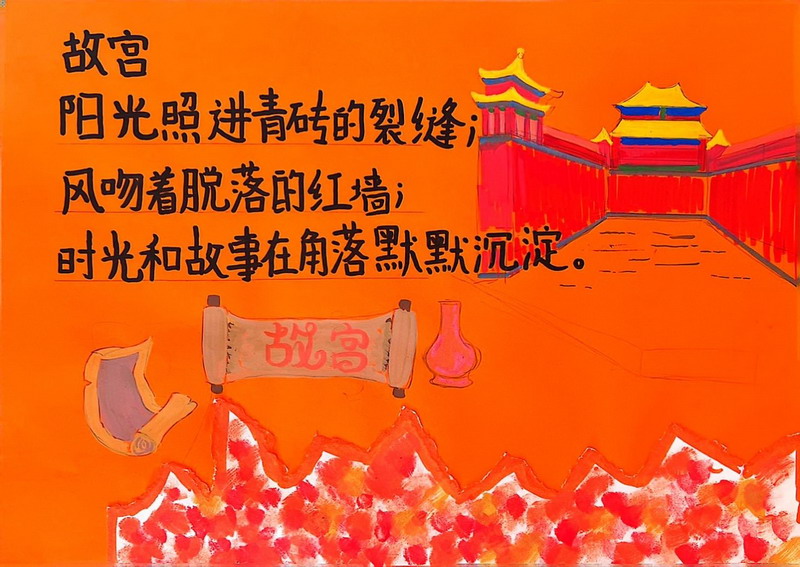 故宫
阳光照进青砖的裂缝；
风吻着脱落的红墙；
时光和故事在角落默默沉淀。
故宫